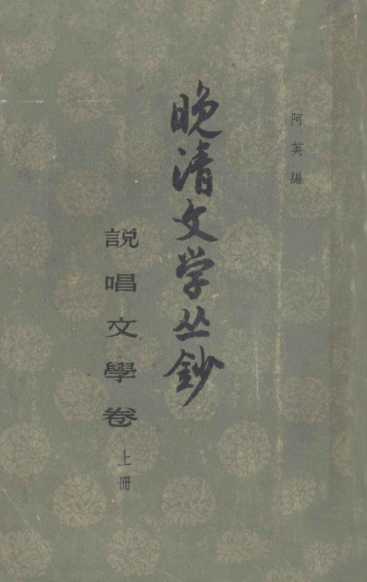 阿英編
晚清文学丛鈔
説唱文學卷 上冊